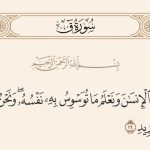 سُورَةُ قٓ
بِسْمِ ٱللَّهِ ٱلرَّحْمَٰنِ ٱلرَّحِيمِ
ٱلْإِنسَٰنَ وَنَعْلَمُ مَا تُوَسْوِسُ بِهِۦ نَفْسُهُۥ ۖ وَنَحْنُ
١٦